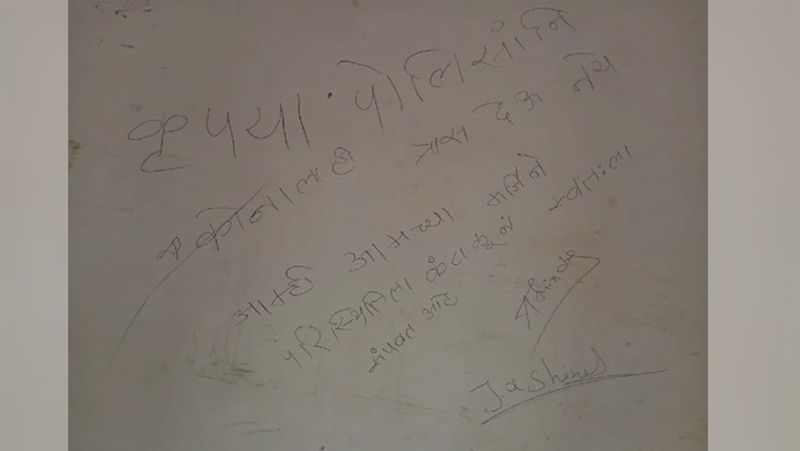 कृपया पोलिसांनि
कोनालाही त्रास देऊ नये
आम्ही आमच्या मर्जिने
परिस्थितिला कंटाळून स्वतःला
संपवत आहे
Shinde
J.d. Shinde